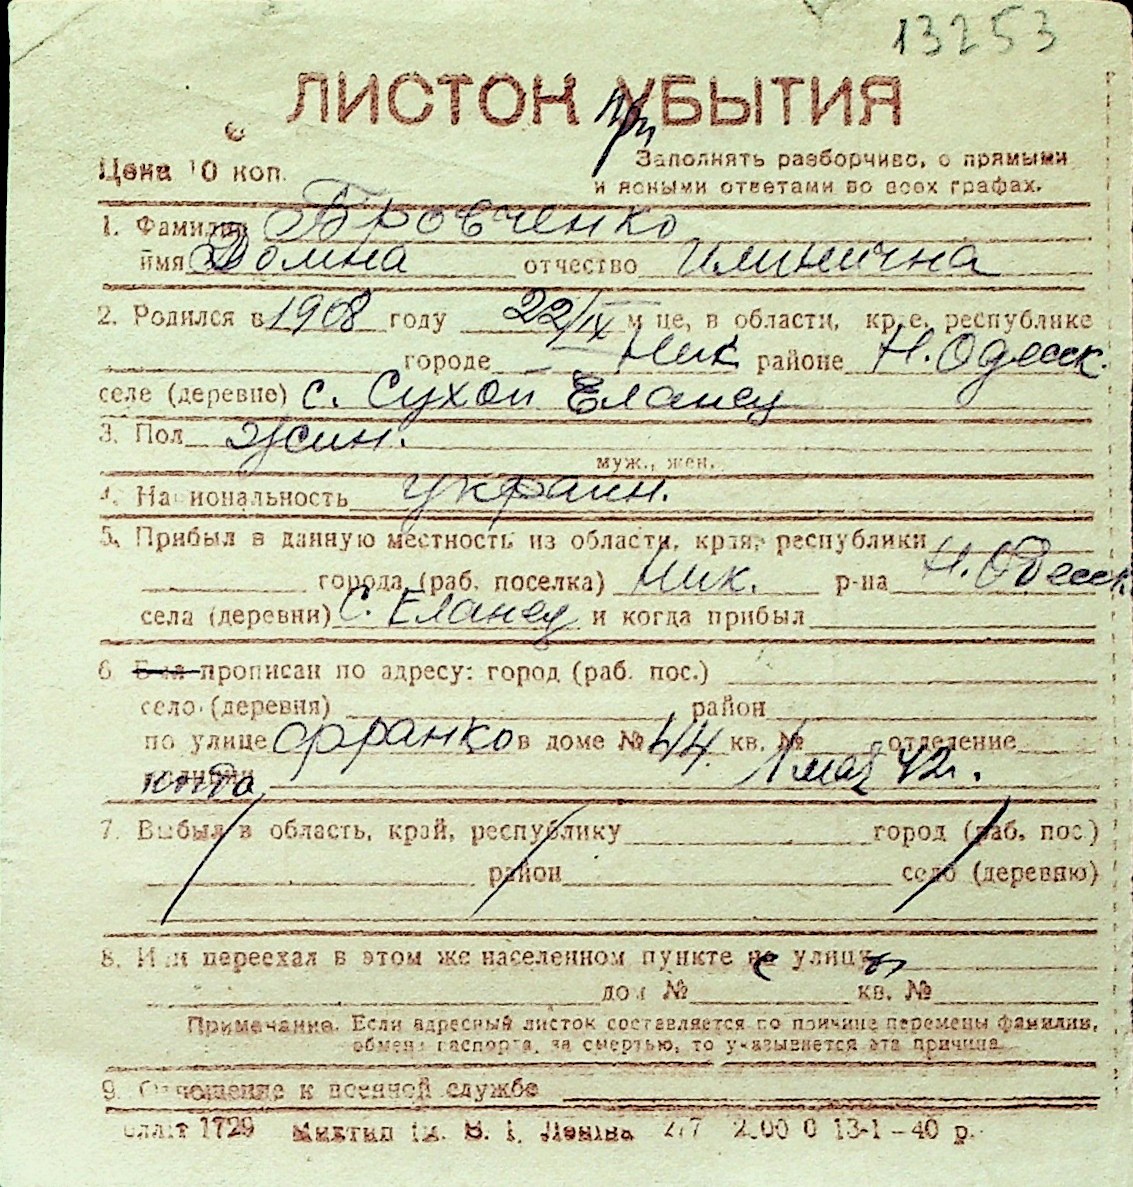 13253
ЛИСТОК УБЫТИЯ
При
Цена 10 коп.
Заполнять разборчиво, с прямыми
и ясными ответами во всех графах.
1. Фамилия Бровченко
имя Домна отчество Илинична
2. Родился в 1908 году 22/IX м-це, в области, крае, республике
городе Ник районе Н. Одесск.
селе (деревне) с. Сухой Еланец
3. Пол жин.
муж., жен.
4. Национальность украин.
5. Прибыл в данную местность из области, края, республики
города (раб. поселка) Ник. р-на Н. Одесск.
села (деревни) С. Еланец и когда прибыл
6 Был прописан по адресу: город (раб. пос.)
село (деревня) район
по улице Франко в доме № 44 кв. № отделение
когда 1 мая 42 г.
7. Выбыл в область, край, республику город (раб. пос)
район село (деревню)
8. Или переехал в этом же населенном пункте с улицы
дом № кв. №
Примечание. Если адресный листок составляется по причине перемены фамилии,
обмена паспорта, за смертью, то указывается эта причина
9. Отношение к военной службе
1729 им. В. І. Леніна 277 13-1-40 р.